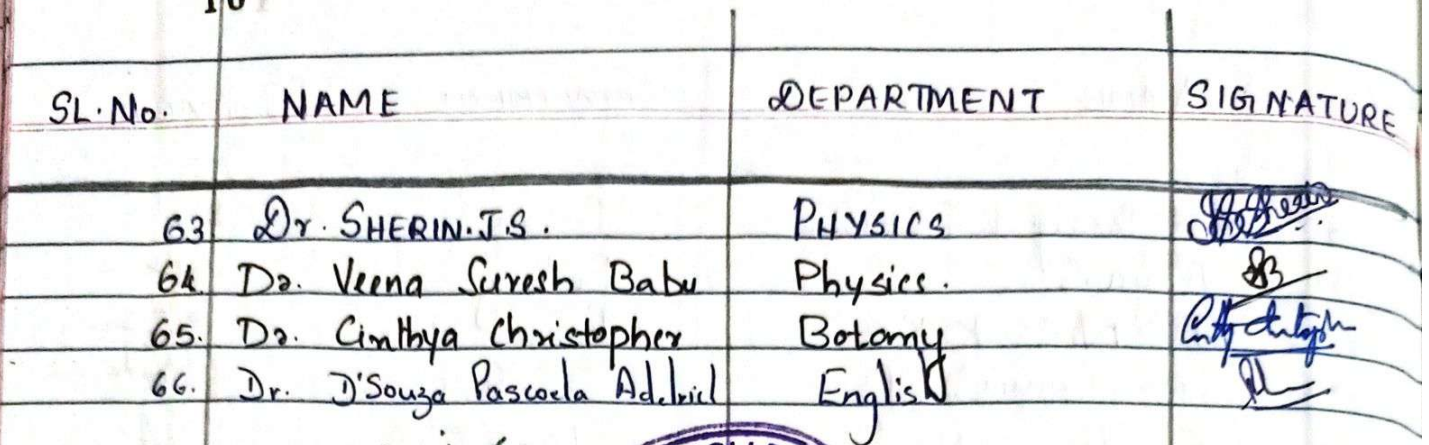 SL.No. NAME DEPARTMENT SIGNATURE
63 Dr. SHERIN.J.S. PHYSICS
64 Dr. Veena Suresh Babu Physics.
65. Dr. Cinthya Christopher Botany
66. Dr. D'Souza English